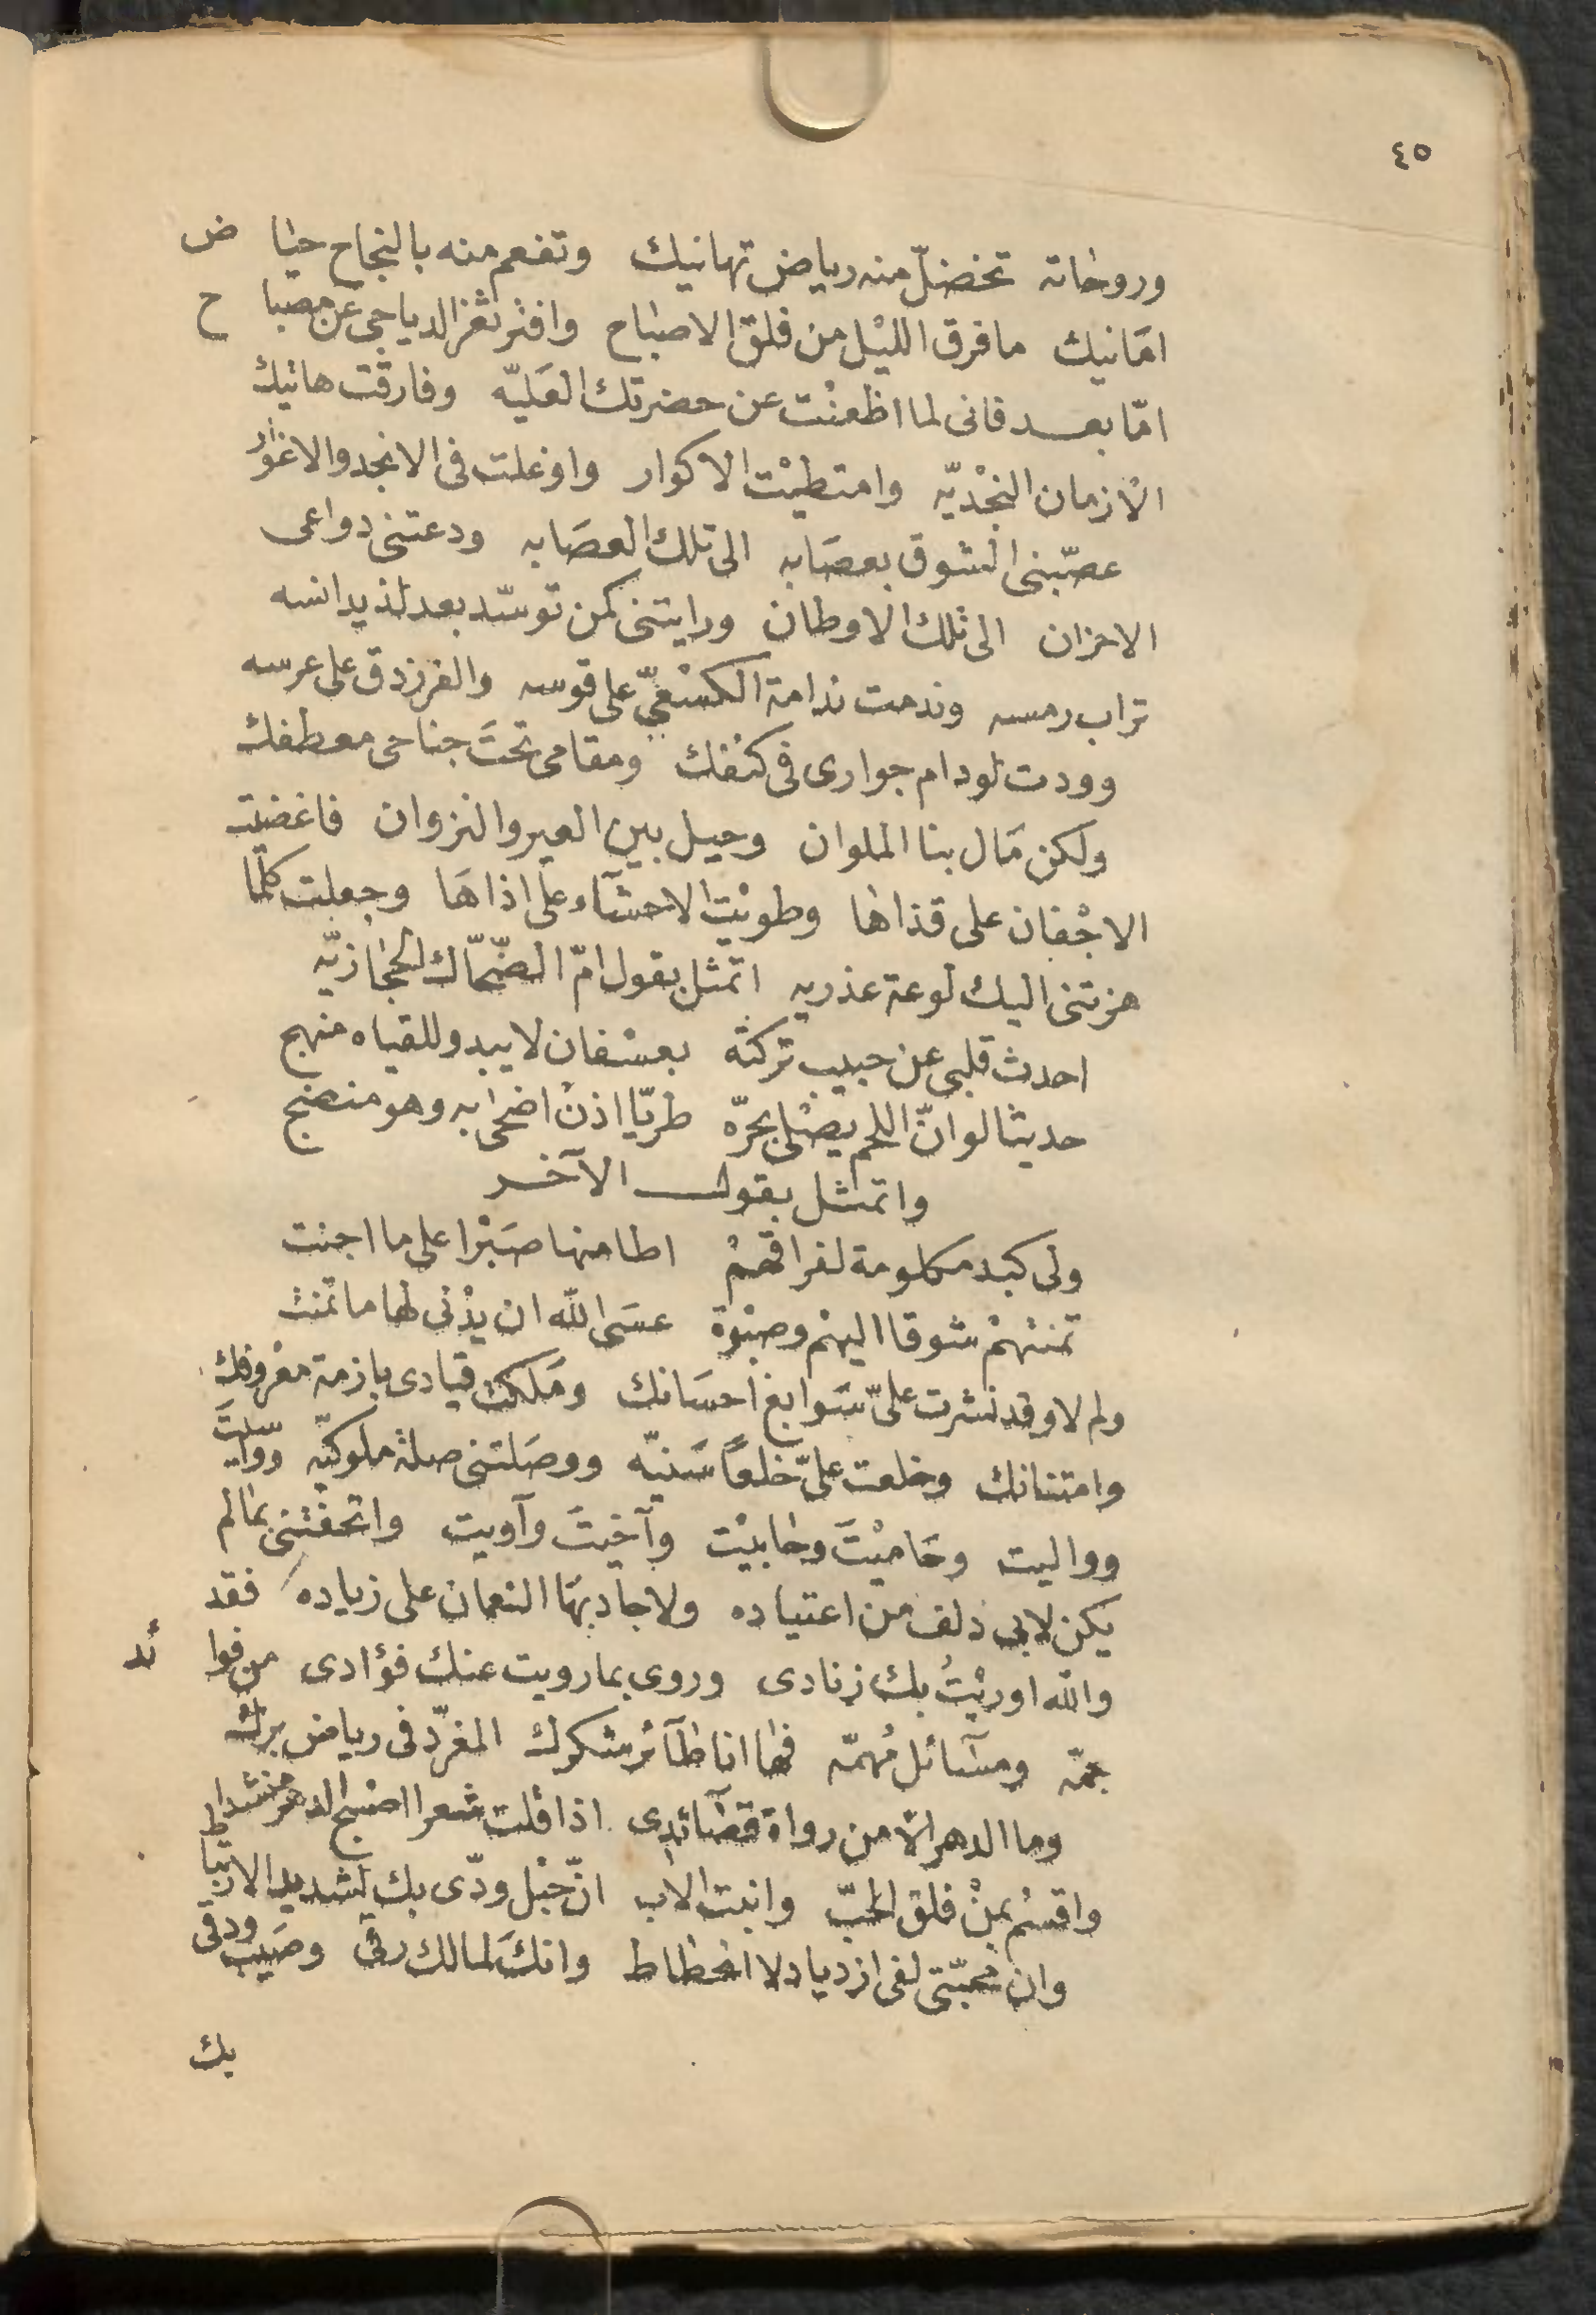 ٤٥
وروحاته تخضلّ منه رياض تهانيك وتفعم منه بالنجاح حياض
امَانيك مافرق الليْل من فلق الاصباح وافتر ثغر الدياجى عن مصباح
امّا بعد فانى لما اظعنْت عن حضرتك العَليّه وفارقت هاتيك
الازمان النجْديّه وامتطيْت الاكوار واوغلت فى الانجد والاغوار
عصّبنى الشوق بعصَابه الى تلك العصَابه ودعتنى دواعى
الاحزان الى تلك الاوطان ورايتنى كمن توسّد بعد لذيد انسه
تراب رمسه وندمت ندامة الكسْعىّ على قوسه والفرزدق على عرسه
وودت لودام جوارى فى كنفك ومقامى تحتَ جناحى معطفك
ولكن مَال بنا الملوان وحيل بين العير والنزوان فاغضيت
الاجْفان على قذاها وطويْت الاحشآء على اذاهَا وجعلت كلّما
هزتنى اليك لوعة عذريه اتمثل بقول امّ الضّحّاك الحجازيّه
احدث قلبى عن حبيب تركته بعسْفان لا يبدو للقياه منهج
حديثا لو انّ اللحم يصْلى بحرّه طريّا اذنْ اضحى به وهو منضج
واتمثل بقول الآخر
ولى كبد مكلومة لفراقهمْ اطامنها صَبْرا على ما اجنت
تمنتهمْ شوقا اليهمْ وصبْوة عسَى الله ان يدْنى لها ما تمنت
ولم لا وقد نشرت علىّ سَوابغ احسَانك ومَلكت قيادى بازمة معْروفك
وامتنانك وخلعت علىّ خلعًا سَنيّه ووصَلتنى صلة ملوكيّه وواسيتَ
وواليت وحَاميْتَ وحابيْت وآخيتَ وآويت واتحفْتنى بمالم
يكن لابى دلف من اعتياده ولا جاد بهَا النعمان على زياده فقد
والله اوريْتُ بك زنادى وروى بما رويت عنك فؤادى من فوائد
جمّه ومسَائل مُهمّه فها انا طآئر شكرك المغرّد فى رياض برك
وما الدهر الّا من رواة قصَآئدى اذا قلت شعرا اصْبح الدهر منشدا
واقسُم بمنْ فلق الحبّ وانبت الاب انّ حبْل ودّى بك لشديد الارتباط
وان محبّتى لفى ازدياد لا انحطاط وانكَ لمالك رقى وصَيب ودقى
بك